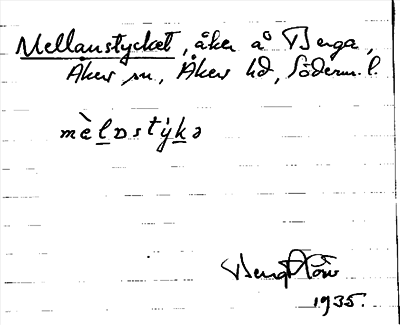 Mellanstycket, åker å Berga,
Åkers sn, Åkers hd, Söderm. l.
mèlɒstýkə
Bengt
1935.